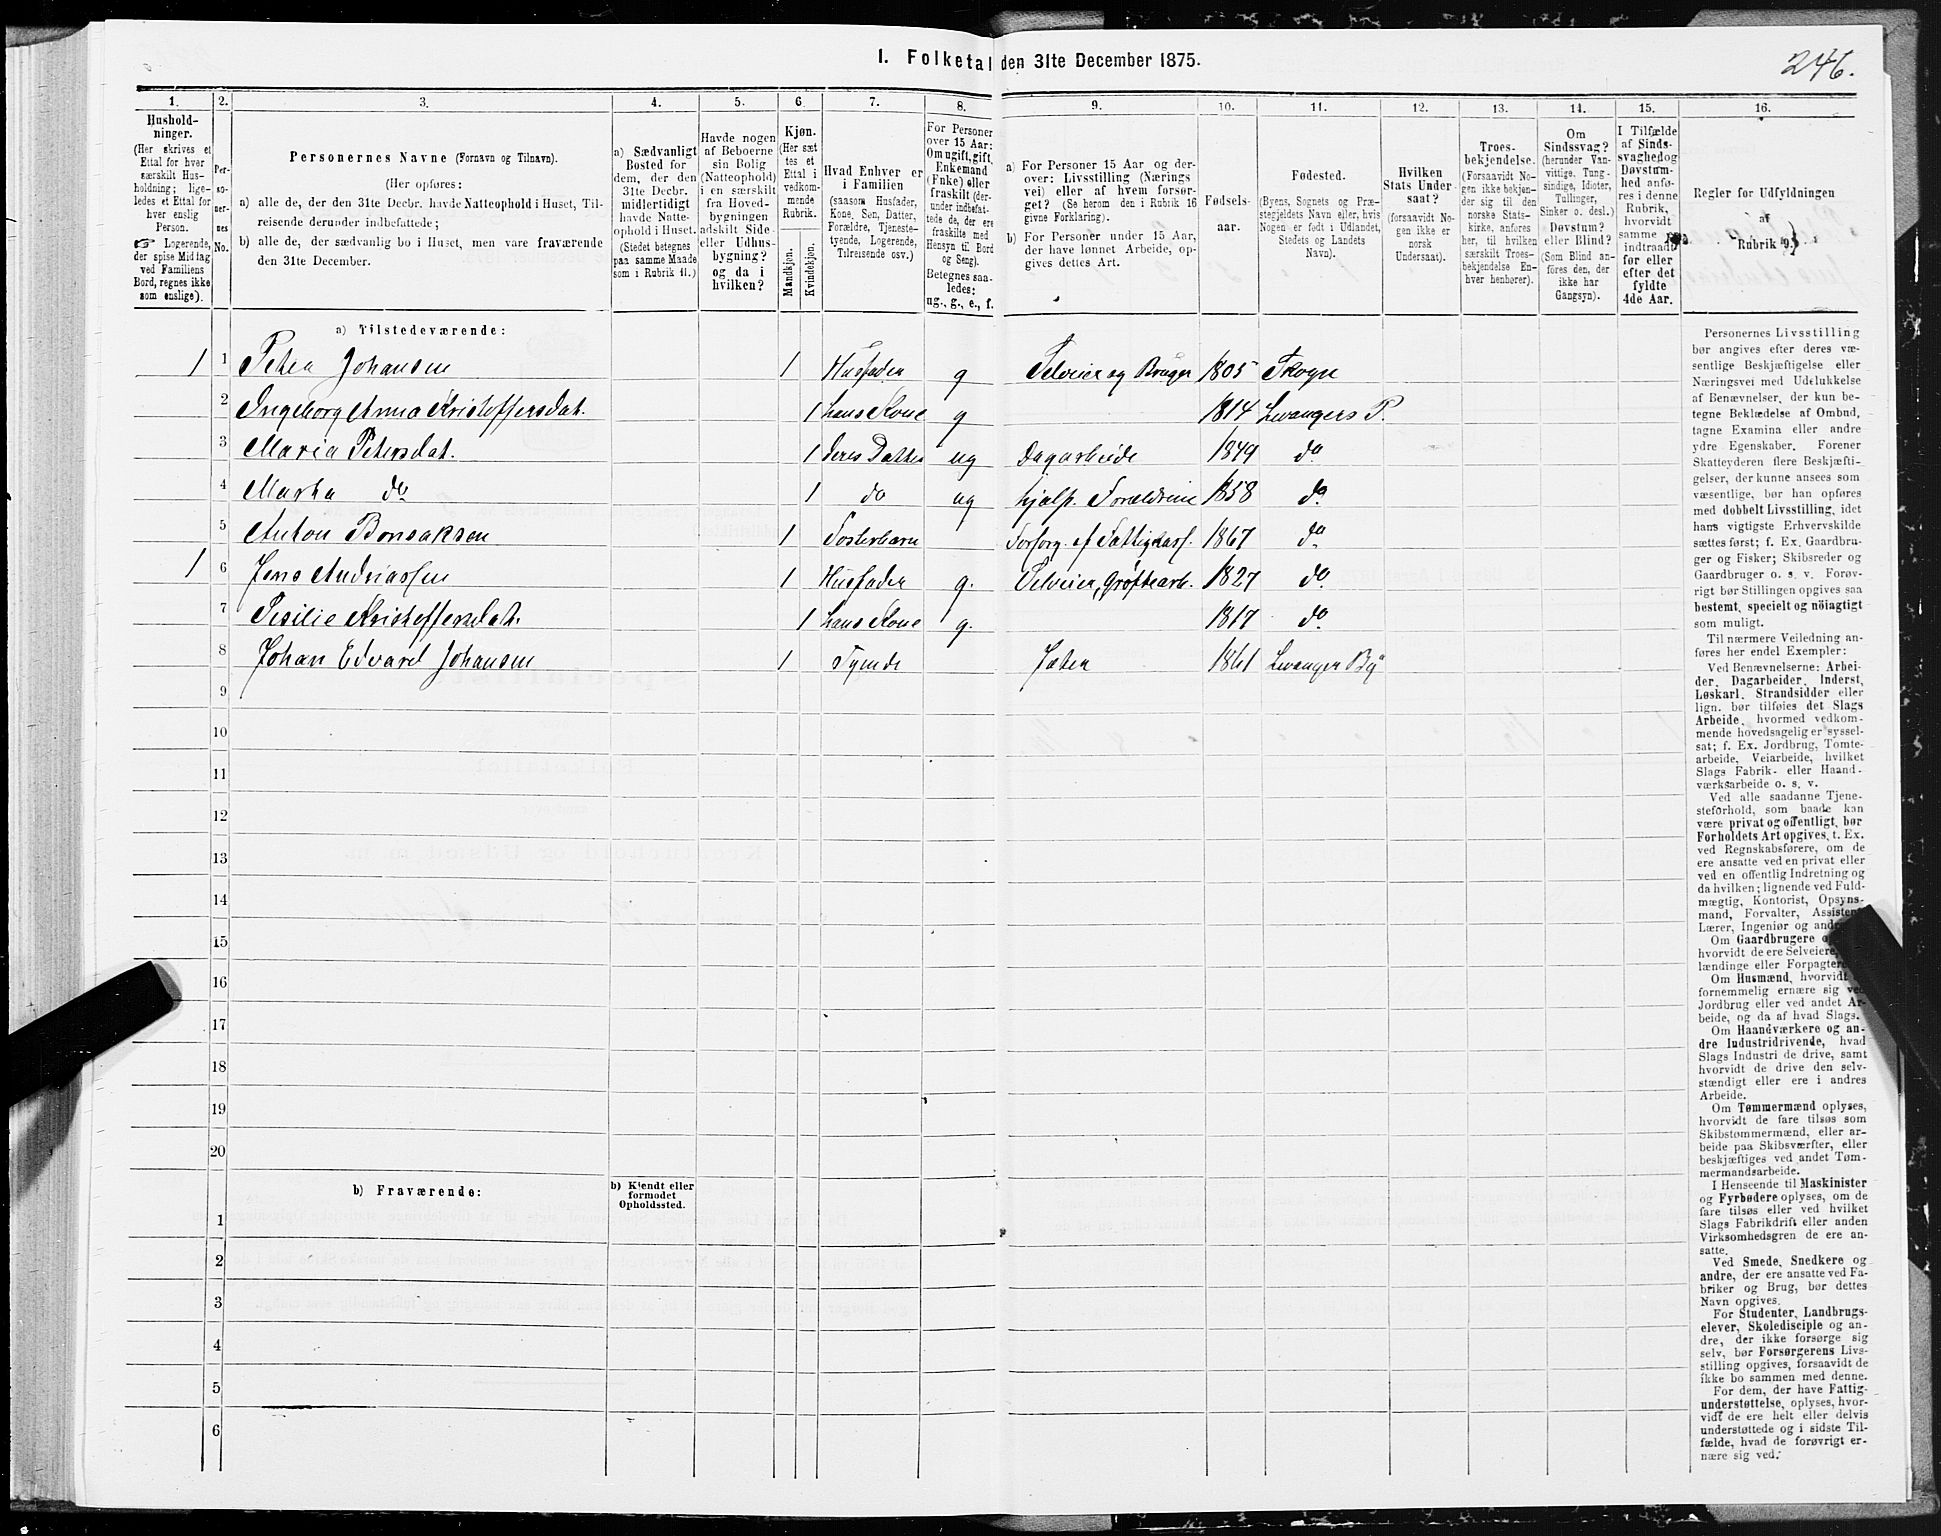 1. Folketal den 31te December 1875.
246.
1.
Hushold-
ninger.
(Her skrives et
Ettal for hver
særskilt Hus-
holdning; lige-
ledes et Ettal for
hver enslig
Person.
Logerende,
der spise Middag
ved Familiens
Bord, regnes ikke
som enslige).
2.
Per-
so-
ner-
nes
No.
3.
Personernes Navne (Fornavn og Tilnavn).
(Her opføres:
a) alle de, der den 31te Decbr. havde Natteophold i Huset, Til-
reisende derunder indbefattede;
b) alle de, der sædvanlig bo i Huset, men vare fraværende
den 31te December.
4.
a) Sædvanligt
Bosted for
dem, der den
31te Decbr.
midlertidigt
havde Natte-
ophold i Huset.
(Stedet betegnes
paa samme Maade
som i Rubrik 11.)
5.
Havde nogen
af Beboerne
sin Bolig
(Natteophold)
i en særskilt
fra Hoved-
bygningen
adskilt Side-
eller Udhus-
bygning?
og da i
hvilken?
6.
Kjøn.
(Her sæt-
tes et
Ettal i
vedkom-
mende
Rubrik.
Mandkjøn.
Kvindekjøn.
7.
Hvad Enhver er
i Familien
(saasom Husfader,
Kone, Søn, Datter,
Forældre, Tjeneste-
tyende, Logerende,
Tilreisende osv.)
8.
For Personer
over 15 Aar:
Om ugift, gift,
Enkemand
(Enke) eller
fraskilt (der-
under indbefat-
tede de, der ere
fraskilte med
Hensyn til Bord
og Seng).
Betegnes saa-
ledes:
ug., g., e., f.
9.
a) For Personer 15 Aar og der-
over: Livsstilling (Nærings-
vei) eller af hvem forsør-
get? (Se herom den i Rubrik 16
givne Forklaring).
b) For Personer under 15 Aar,
der have lønnet Arbeide, op-
gives dettes Art.
10.
Fødsels-
aar.
11.
Fødested.
(Byens, Sognets og Præ-
stegjeldets Navn eller, hvis
Nogen er født i Udlandet,
Stedets og Landets
Navn).
12.
Hvilken
Stats Under-
saat?
(forsaavidt No-
gen ikke er
norsk
Undersaat).
13.
Troes-
bekjendelse.
(Forsaavidt No-
gen ikke bekjen-
der sig til den
norske Stats-
kirke, anføres
her, til hvilken
særskilt Troes-
bekjendelse En-
hver henhører).
14.
Om
Sindssvag?
(herunder Van-
vittige, Tung-
sindige, Idioter,
Tullinger,
Sinker o. desl.)
Døvstum?
eller Blind?
(Som Blind an-
føres den, der
ikke har
Gangsyn).
15.
I Tilfælde
af Sinds-
svaghed og
Døvstum-
hed anfø-
res i denne
Rubrik,
hvorvidt
samme er
indtraadt
før eller
efter det
fyldte
4de Aar.
16.
Regler for Udfyldningen
af
Rubrik 9.
a) Tilstedeværende:
1 1 Peter Johansen 1 Husfader g Selveier og Bruger 1805 Skogn
2 Ingeborg Anna Kristoffersdat. 1 hans Kone g 1814 Levangers P.
3 Maria Petersdat. 1 deres Datter ug Dagarbeide 1849 do
4 Marha do 1 do ug hjælp. Forældrene 1858 do
5 Anton Bonsaksen 1 Fosterbarn Forsørg. af Fattigkass. 1867 do
1 6 Jens Andriassen 1 Husfader g. Selveier, Grøftearb. 1827 do
7 Sesilie Kristoffersdat. 1 hans Kone g. 1817 do
8 Johan Edvard Johansen 1 Tyende Jæter 1861 Levanger By
9
10
11
12
13
14
15
16
17
18
19
20
b) Fraværende:
b) Kjendt eller
formodet
Opholdssted.
1
2
3
4
5
6
Personernes Livsstilling
bør angives efter deres væ-
sentlige Beskjæftigelse eller
Næringsvei med Udelukkelse
af Benævnelser, der kun be-
tegne Beklædelse af Ombud,
tagne Examina eller andre
ydre Egenskaber. Forener
Skatteyderen flere Beskjæfti-
gelser, der kunne ansees som
væsentlige, bør han opføres
med dobbelt Livsstilling, idet
hans vigtigste Erhvervskilde
sættes først; f. Ex. Gaardbru-
ger og Fisker; Skibsreder og
Gaardbruger o. s. v. Forøv-
rigt bør Stillingen opgives saa
bestemt, specielt og nöiagtigt
som muligt.
Til nærmere Veiledning an-
føres her endel Exempler:
Ved Benævnelserne: Arbei-
der, Dagarbeider, Inderst,
Løskarl, Strandsidder eller
lign. bør tilføies det Slags
Arbeide, hvormed vedkom-
mende hovedsagelig er syssel-
sat; f. Ex. Jordbrug, Tomte-
arbeide, Veiarbeide, hvilket
Slags Fabrik- eller Haand-
værksarbeide o. s. v.
Ved alle saadanne Tjene-
steforhold, som baade kan
være privat og offentligt, bør
Forholdets Art opgives, t. Ex.
ved Regnskabsførere, om de
ere ansatte ved en privat eller
ved en offentlig Indretning og
da hvilken; lignende ved Fuld-
mægtig, Kontorist, Opsyns-
mand, Forvalter, Assistent,
Lærer, Ingeniør og andre.
Om Gaardbrugere
hvorvidt de ere Selveiere,
lændinge eller Forpagtere.
Om Husmænd, hvorvidt
fornemmelig ernære sig ved
Jordbrug eller ved andet Ar-
beide, og da af hvad Slags.
Om Haandværkere og an-
dre Industridrivende, hvad
Slags Industri de drive, samt
hvorvidt de drive den selv-
stændigt eller ere i andres
Arbeide.
Om Tømmermænd oplyses,
hvorvidt de fare tilsøs som
Skibstømmermænd, eller ar-
beide paa Skibsværfter, eller
beskjæftiges ved andet Tøm-
mermandsarbeide.
I Henseende til Maskinister
og Fyrbødere oplyses, om de
fare tilsøs eller ved hvilket
Slags Fabrikdrift eller anden
Virksomhedsgren de ere an-
satte.
Ved Smede, Snedkere og
andre, der ere ansatte ved Fa-
briker og Brug, bør dettes
Navn opgives.
For Studenter, Landbrugs-
elever, Skoledisciple og an-
dre, der ikke forsørge sig
selv, bør Forsørgerens Livs-
stilling opgives, forsaavidt de
ikke bo sammen med denne.
For dem, der have Fattig-
understøttelse, oplyses, hvor-
vidt de ere helt eller delvis
understøttede og i sidste Til-
fælde, hvad de forøvrigt er-
nære sig ved.